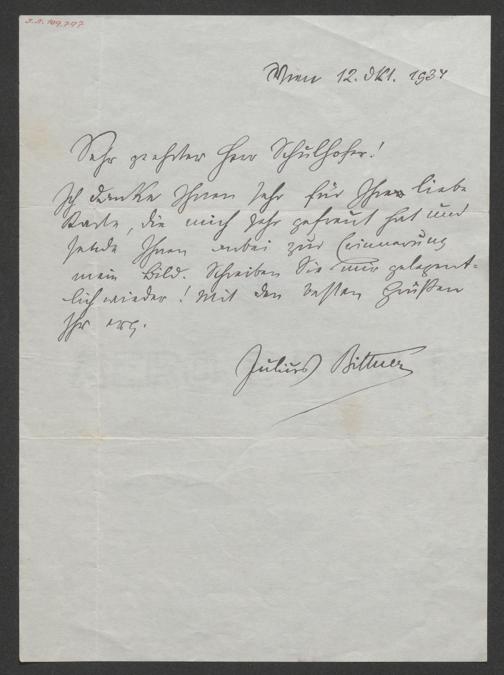 I.N. 189.797
Wien 12. Okt. 1934
Sehr geehrter Herr Schulhofer!
Ich danke Ihnen sehr für Ihre liebe
Karte, die mich sehr gefreut hat und
sende Ihnen anbei zur Erinnerung
mein Bild. Schreiben Sie mir gelegent-
lich wieder! Mit den besten Grüßen
Ihr erg.
Julius Bittner